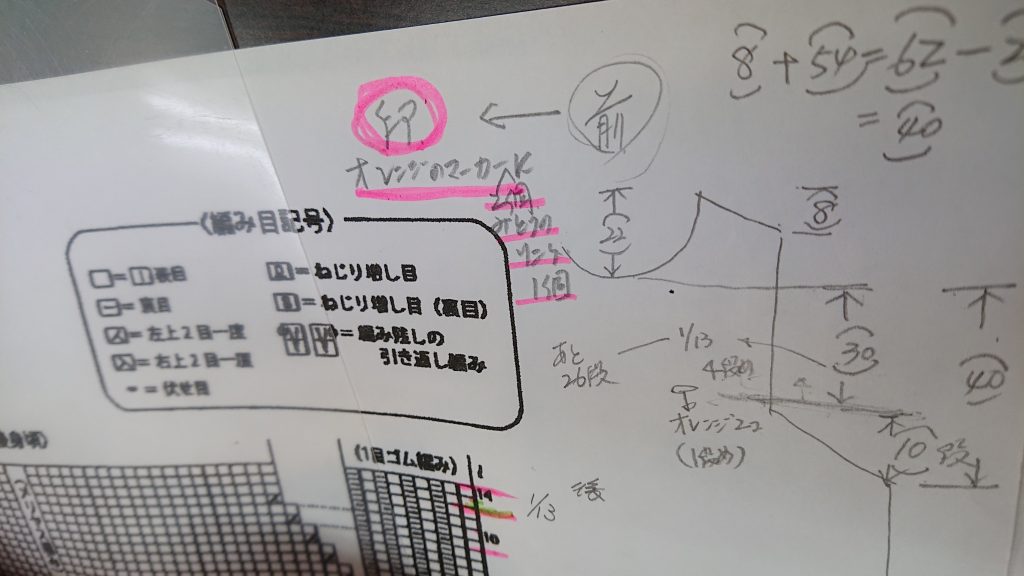 8+54=62-2
=40
印 ← 前
オレンジのマーカーに
2個
みどりの
リング
1個
22
8
30
40
10
段
1/13
4段め
あと
26段
オレンジ2コ
(1段め)
〈編み目記号〉
□=｜表目
－=裏目
=左上2目一度
=右上2目一度
=伏せ目
=ねじり増し目
=ねじり増し目(裏目)
=編み残しの
引き返し編み
身頃)
(1目ゴム編み)
14
10
1/13